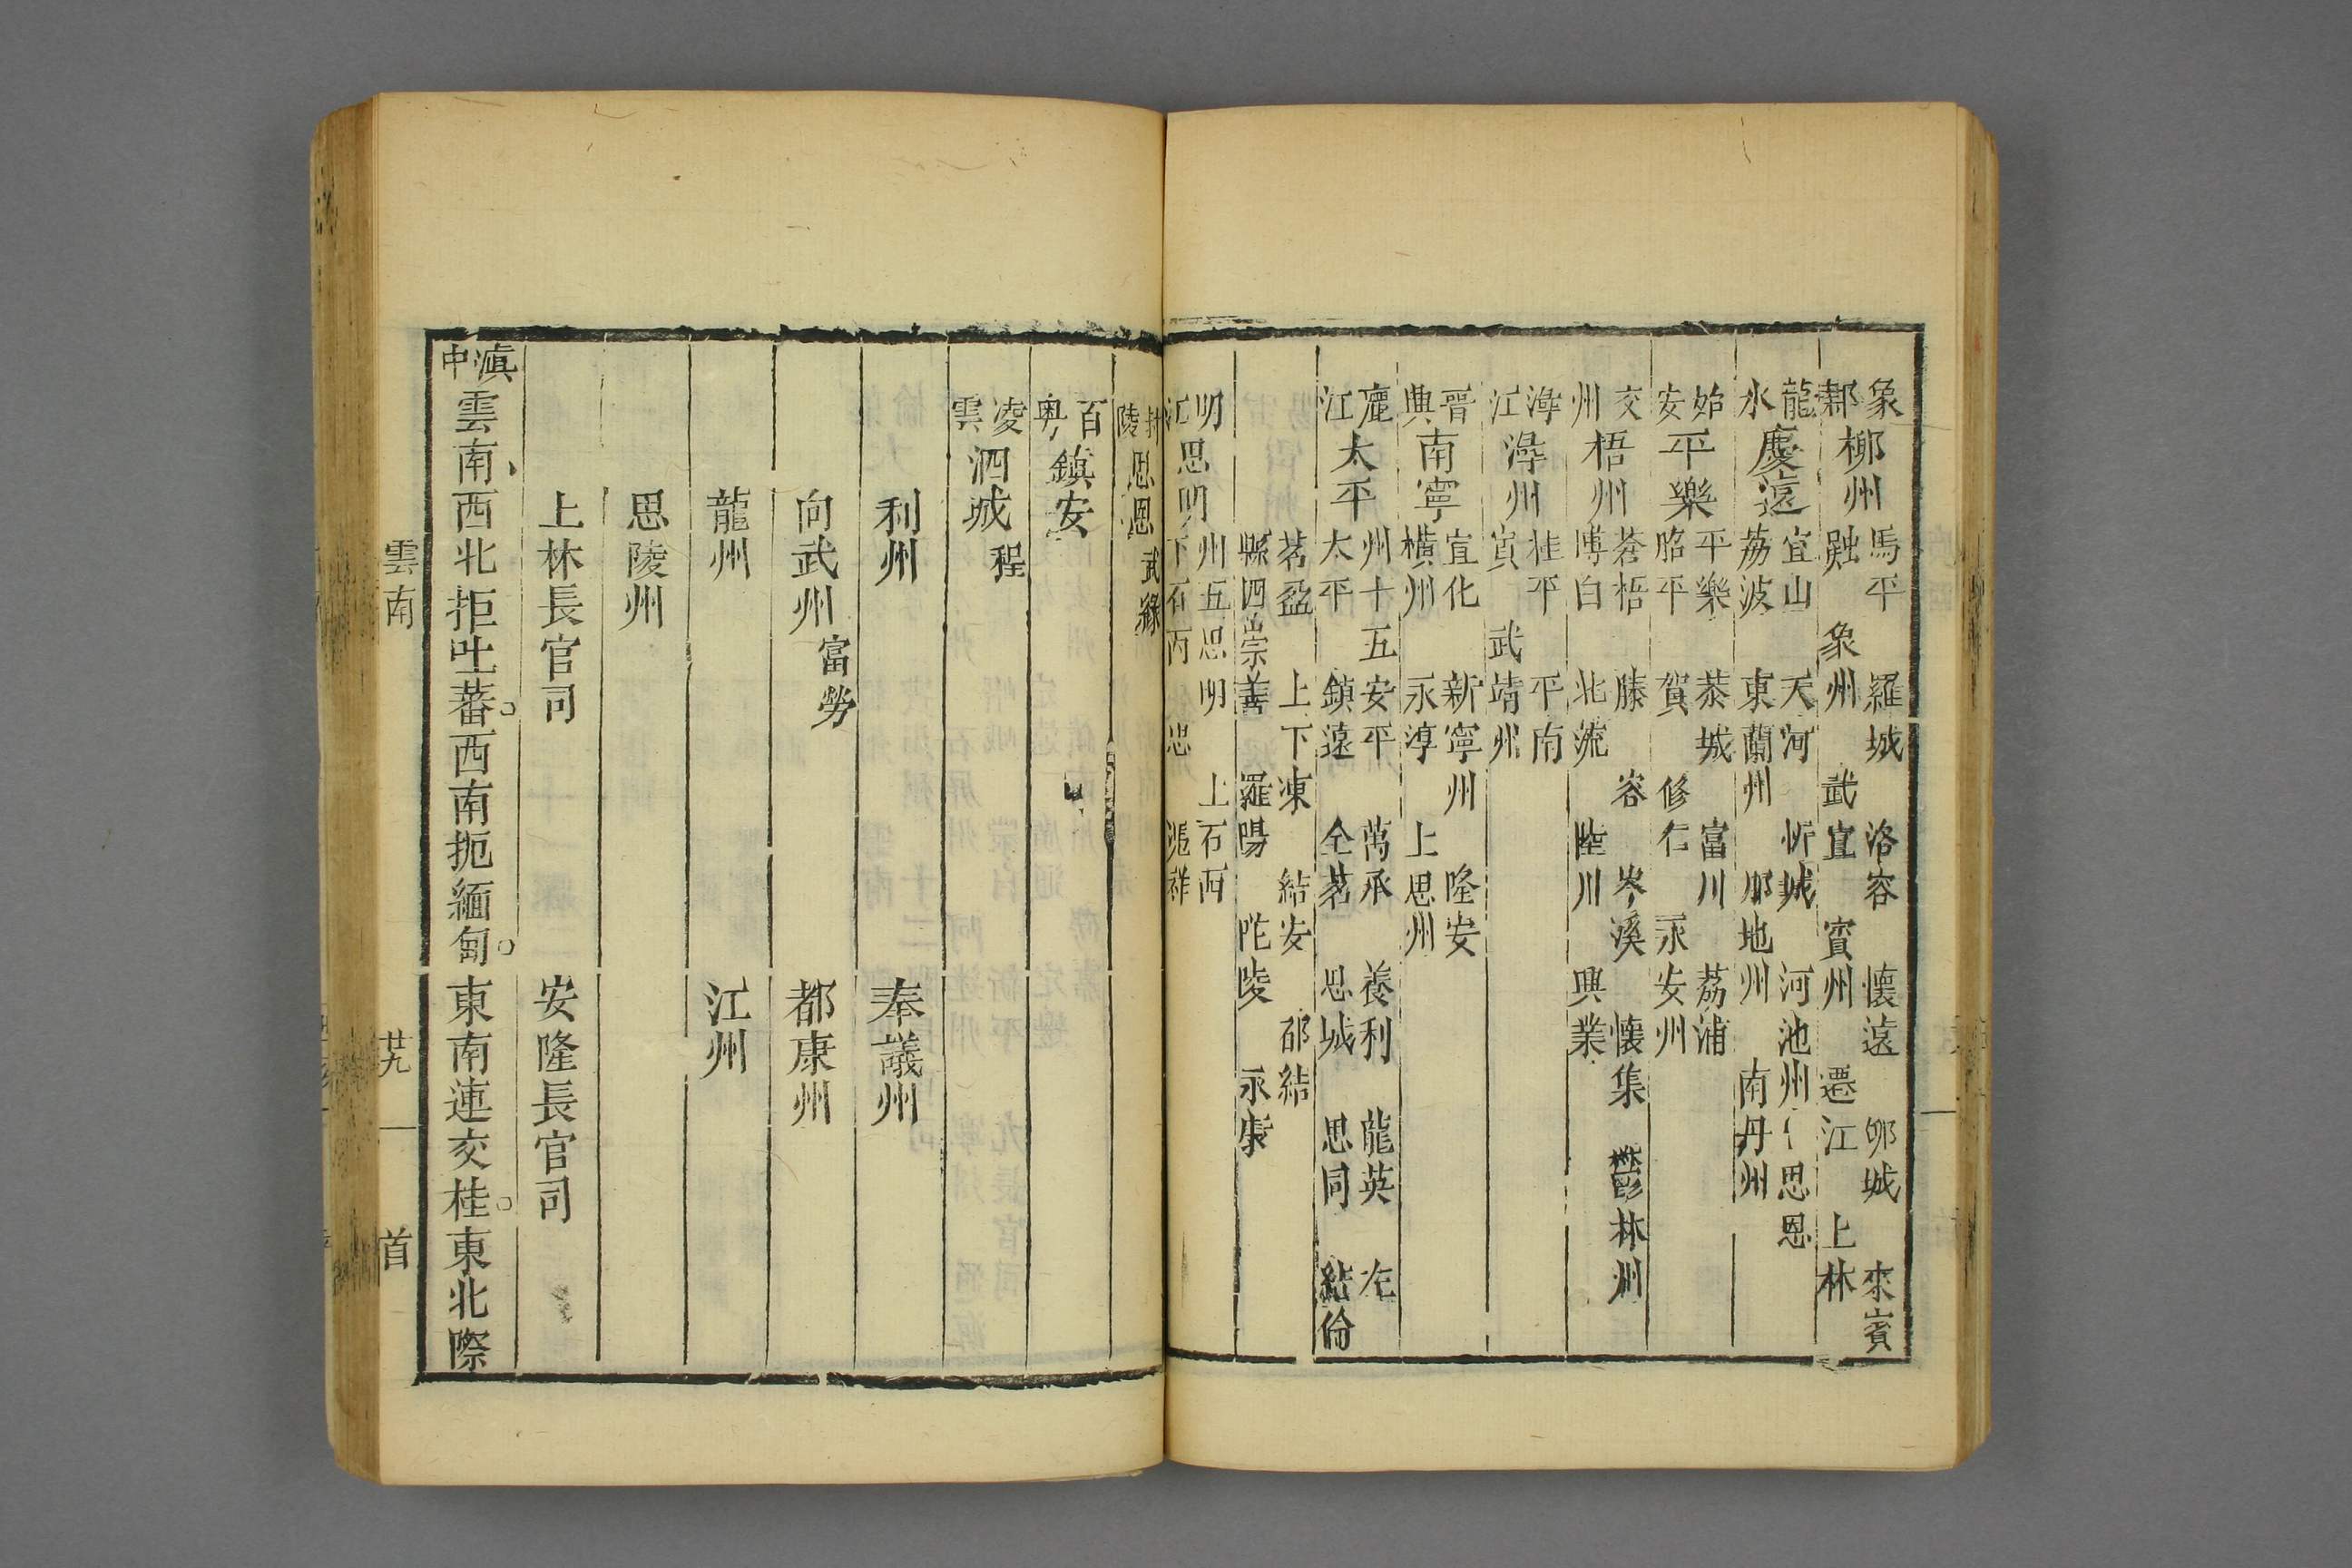 象郡柳州 馬平 羅城 洛容 懷遠 郷城 來賓
融 象州 武宣 賓州 遷江 上林
龍水慶遠 宜山 天河 忻城 河池州 思恩
荔波 東蘭州 那地州 南丹州
始安平樂 平樂 恭城 富川 荔浦
昭平 賀 修仁 永安州
交州梧州 蒼梧 藤 容 岑溪 懷集 鬱林州
博白 北流 陸川 興業
潯江潯州 桂平 平南
貴 武靖州
晋興南寧 宣化 新寧州 隆安
橫州 永淳 上思州
麗江太平 州十五 安平 萬承 養利 龍英 左
太平 鎮遠 全茗 思城 思同 結倫
茗盈 上下凍 結安 都結
縣四 崇善 羅陽 陀陵 永康
明江思明 州五 思明 上石西
下石西 忠 憑祥
封陵思恩 武緣
百粤鎮安
凌雲泗城 程
利州 奉議州
向武州 富勞 都康州
龍州 江州
思陵州
上林長官司 安隆長官司
滇中雲南西北拒吐蕃西南扼緬甸東南連交桂東北際
雲南 廿九 首